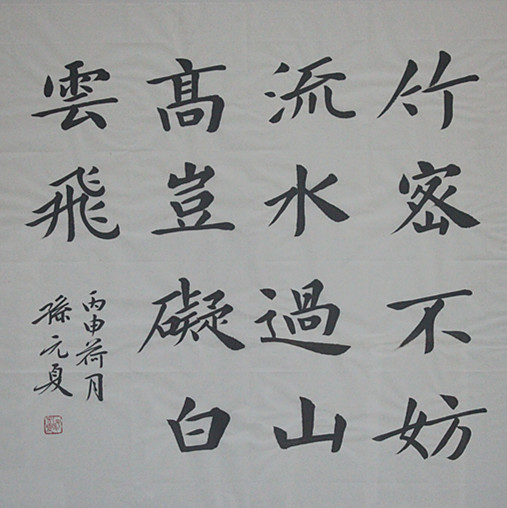 竹密不妨
流水過山
髙豈礙白
雲飛
丙申荷月
孫元夏